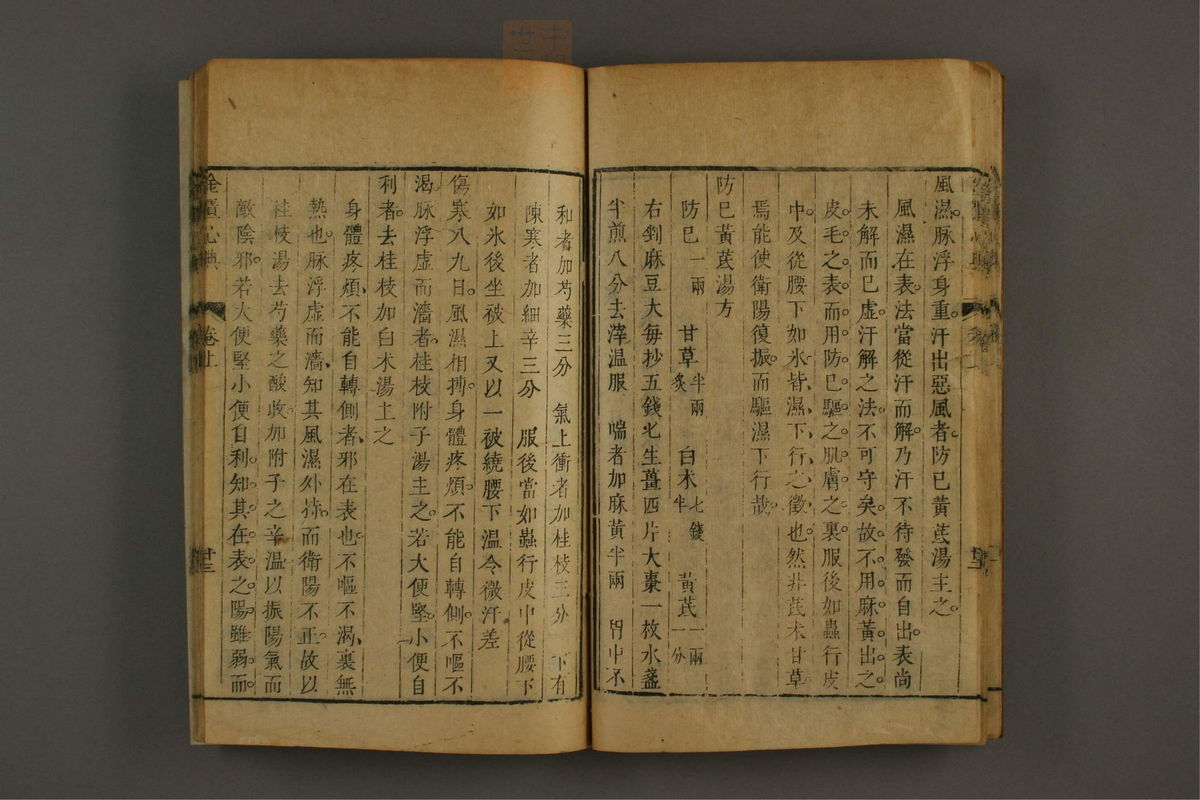 風濕脉浮身重汗出惡風者防已黃芪湯主之
風濕在表法當從汗而解乃汗不待發而自出表尚
未解而已虛汗解之法不可守矣故不用麻黃出之
皮毛之表而用防已驅之肌膚之裏服後如蟲行皮
中及從腰下如氷皆濕下行之徵也然非芪朮甘草
焉能使衛陽復振而驅濕下行哉
防已黃芪湯方
防已一兩 甘草半兩炙 白朮七錢半 黃芪一兩一分
右剉麻豆大每抄五錢匕生薑四片大棗一枚水盞
半煎八分去滓温服 喘者加麻黃半兩 胃中不
和者加芍藥三分 氣上衝者加桂枝三分 下有
陳寒者加細辛三分 服後當如蟲行皮中從腰下
如氷後坐被上又以一被繞腰下温令微汗差
傷寒八九日風濕相搏身體疼煩不能自轉側不嘔不
渴脉浮虛而濇者桂枝附子湯主之若大便堅小便自
利者去桂枝加白朮湯主之
身體疼煩不能自轉側者邪在表也不嘔不渴裏無
熱也脉浮虛而濇知其風濕外持而衛陽不正故以
桂枝湯去芍藥之酸收加附子之辛温以振陽氣而
敵陰邪若大便堅小便自利知其在表之陽雖弱而
金匱心典 卷上 廿三